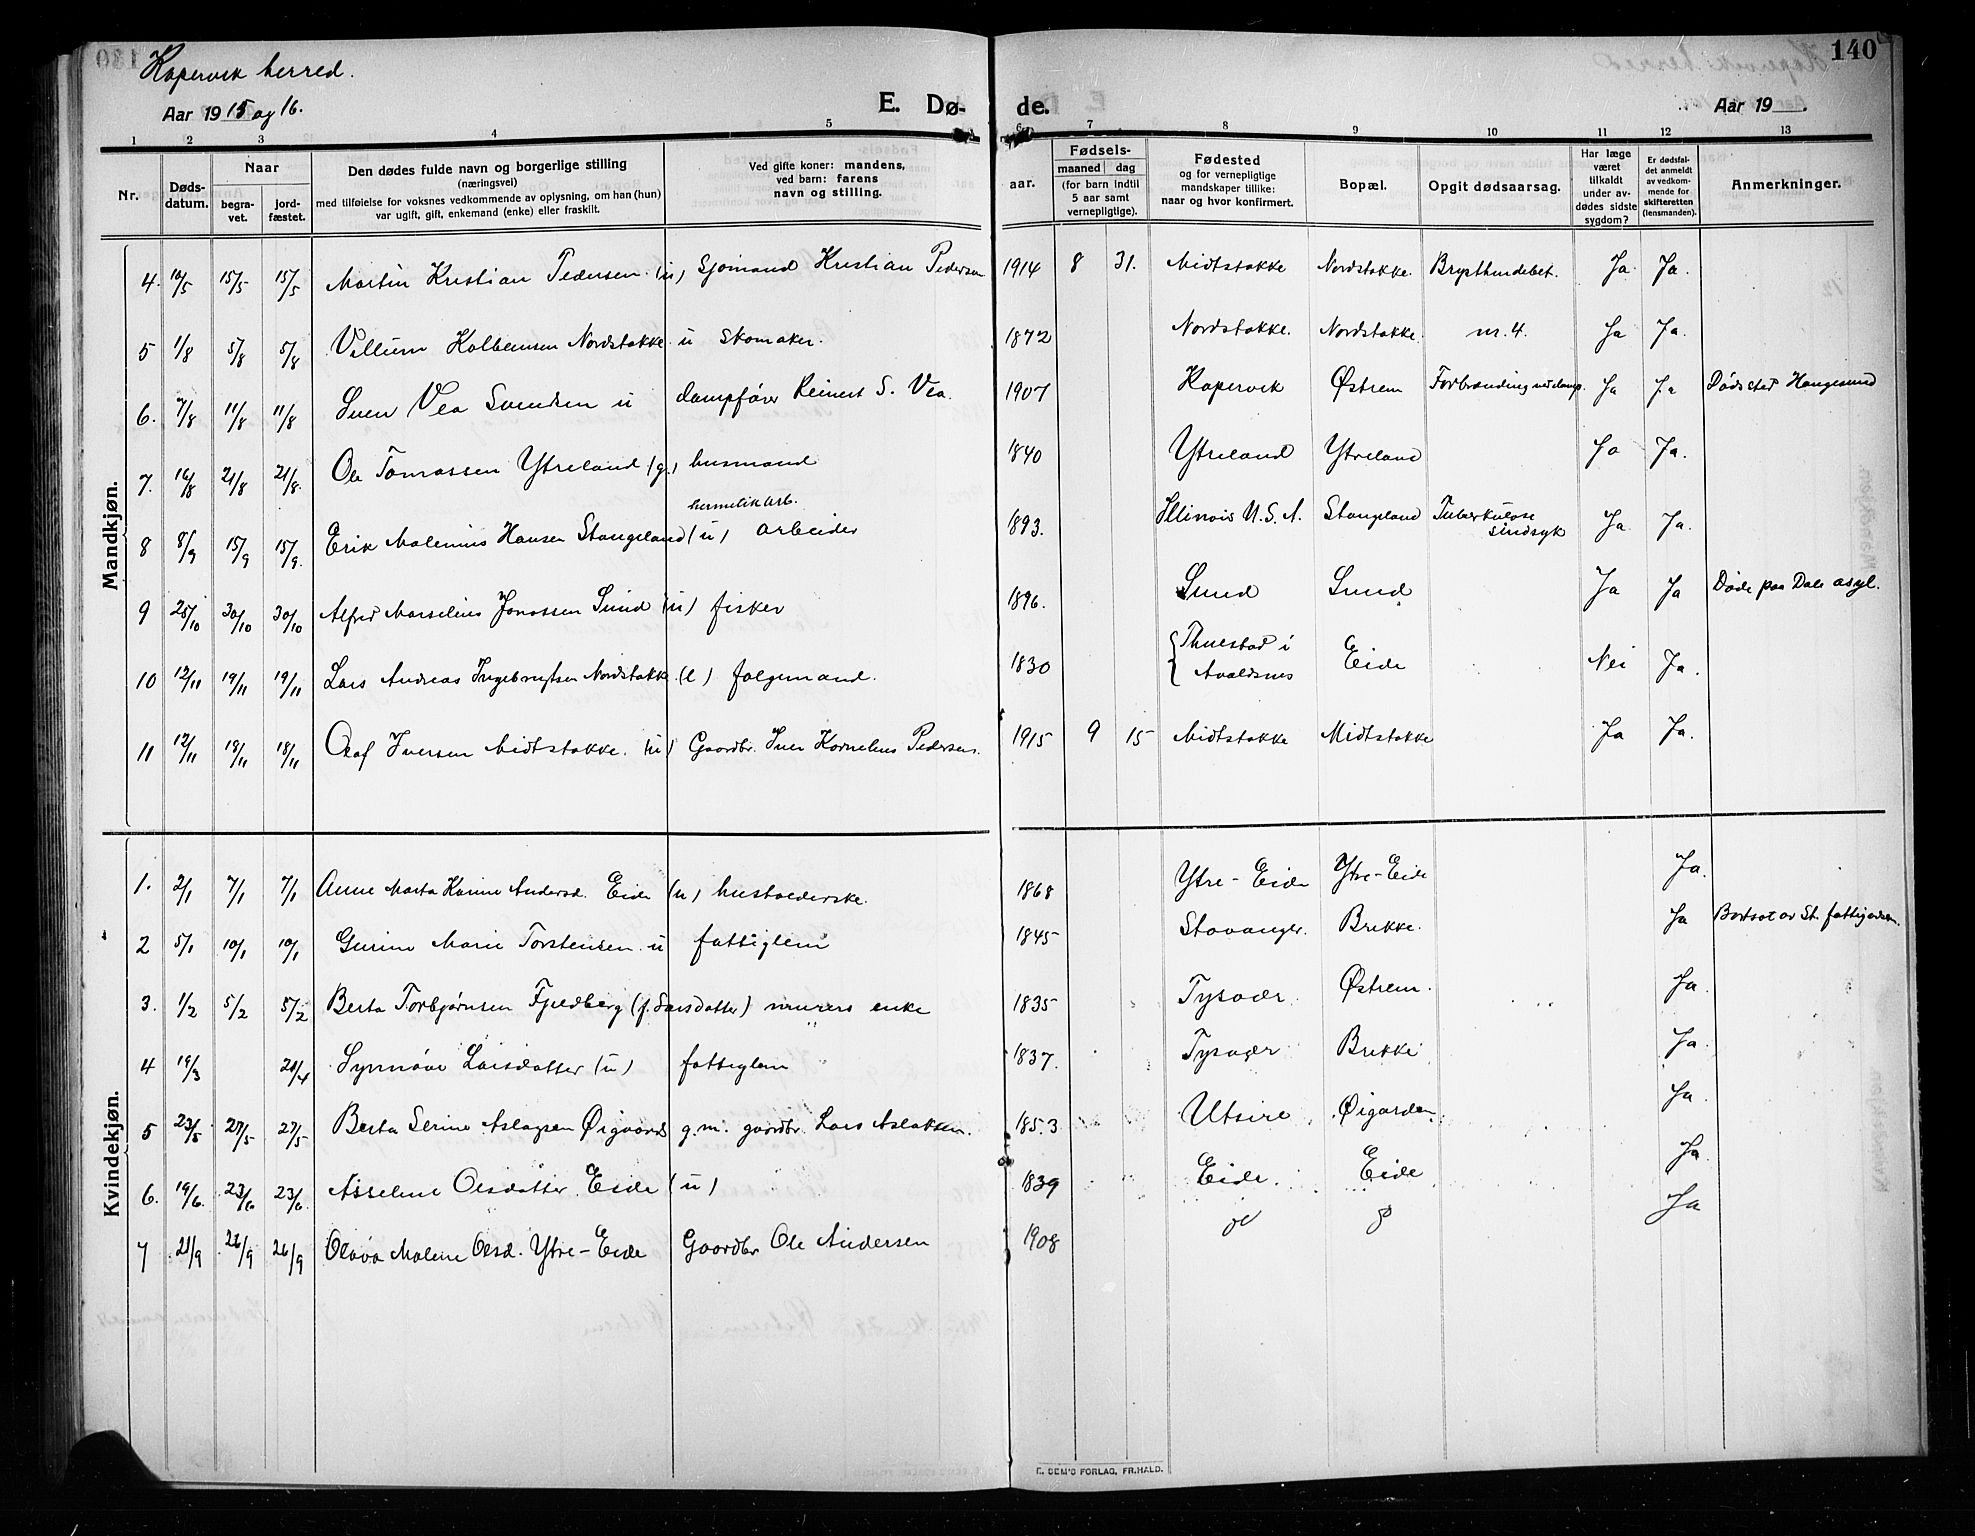 Kopervik herred.
Aar 1915 og 16.
E. Dø-
de.
Aar 19
140
1 2 3 4 5 6 7 8 9 10 11 12 13
Nr.
Døds-
datum.
Naar
begra-
vet.
jord-
fæstet.
Den dødes fulde navn og borgerlige stilling
(næringsvei)
med tilføielse for voksnes vedkommende av oplysning, om han (hun)
var ugift, gift, enkemand (enke) eller fraskilt.
Ved gifte koner: mandens,
ved barn: farens
navn og stilling.
aar.
Fødsels-
maaned dag
(for barn indtil
5 aar samt
vernepligtige).
Fødested
og for vernepligtige
mandskaper tillike:
naar og hvor konfirmert.
Bopæl.
Opgit dødsaarsag.
Har læge
været
tilkaldt
under av-
dødes sidste
sygdom?
Er dødsfal-
det anmeldt
av vedkom-
mende for
skifteretten
(lensmanden).
Anmerkninger.
Mandkjøn.
4. 10/5 15/5 15/5 Martin Kristian Pedersen (u) Sjömand Kristian Pedersen 1914 8 31. Midtstokke Nordstokke. Brysthindebet. Ja Ja.
5 1/8 5/8 5/8 Villum Kolbensen Nordstokke u Skomaker. 1872 Nordstokke. Nordstokke. nr. 4. Ja Ja.
6. 7/8 11/8 11/8 Sven Vea Svendsen u dampfører Reinert S. Vea. 1907 Kopervik Østrem Forbrænding ved damp. Ja Ja Dødssted Haugesund
7. 16/8 21/8 21/8. Ole Tomassen Ytreland (g.) husmand 1840 Ytreland Ytreland Ja Ja.
hermetik arb.
8 8/9 15/9 15/9. Erik Malenius Hansen Stangeland (u) arbeider 1893. Illinois U.S.A. Stangeland Tuberkulose Ja Ja.
sindsyk
9 25/10 30/10 30/10 Alfred Marselius Jonassen Sund (u) fisker 1896. Sund Sund Ja Ja Døde paa Dale asyl.
10 12/11 19/11 19/11 Lars Andreas Ingebrigtsen Nordstokke. (e) folgemand. 1830 Thuestad i Eide Nei Ja.
Avaldsnes
11 12/11 18/11 18/11 Olaf Iversen Midtstokke. (u) Gaardbr. Iver Kornelius Pedersen. 1915 9 15 Midtstokke Midtstokke Ja Ja.
Kvindekjøn.
1. 2/1 7/1 7/1 Anne Marta Karine Andersd. Eide (u) husholderske. 1868 Ytre-Eide Ytre-Eide Ja.
2 5/1 10/1 10/1 Gurine Marie Torstensen u fattiglem 1845 Stavanger. Brekke. Ja Bortsat av St. fattigvæsen.
3. 1/2 5/2 5/2 Berta Torbjørnsen Fjeldberg (f. Larsdatter) murers enke 1835 Tysvær. Østrem. Ja.
4 19/3 20/4 Synnøve Larsdatter (u) fattiglem 1837. Tysvær Brekke Ja.
5 23/5 27/5 27/5 Berta Serine Aslagsen Øigaard g.m. gaardbr. Lars Aslaksen. 1853 Utsire Øigarden Ja.
6. 19/6. 23/6 23/6 Asseline Olsdatter Eide (u) 1839 Eide. Eide Ja
7 21/9 26/9 26/9 Olava Malene Olsd. Ytre-Eide Gaardbr Ole Andersen 1908 Ja
E. SEM'S FORLAG, FR.HALD.